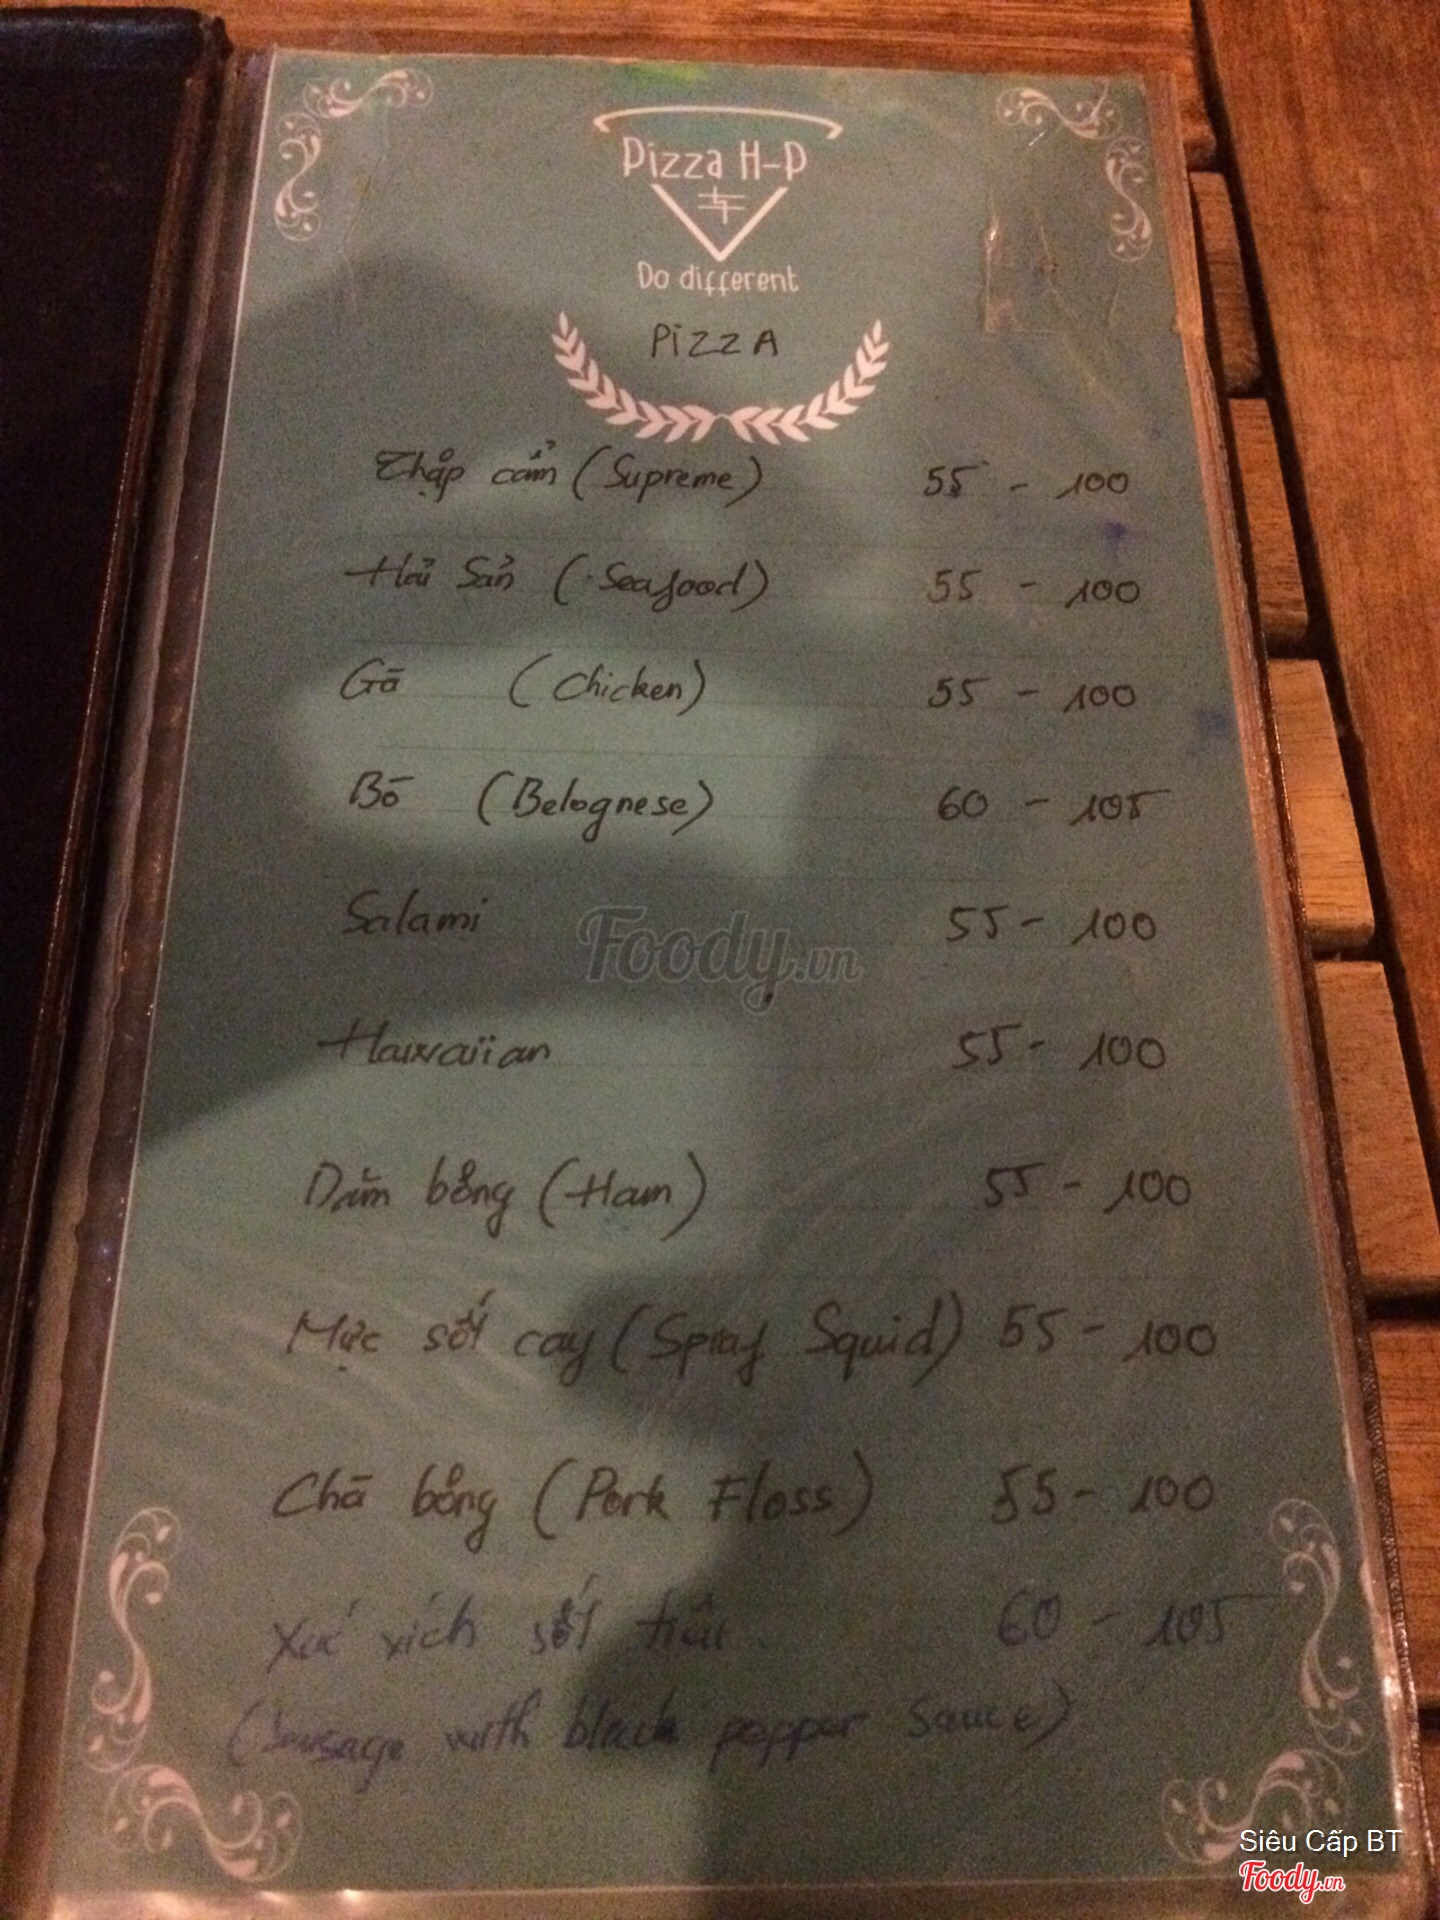 Pizza H-P
Do different
PiZZA
Thập cẩm (Supreme) 55 - 100
Hải Sản (Seafood) 55 - 100
Gà (Chicken) 55 - 100
Bò (Belognese) 60 - 105
Salami 55 - 100
Hawaiian 55 - 100
Dăm bông (Ham) 55 - 100
Mực sốt cay (Squid) 55 - 100
Chà bông (Pork Floss) 55 - 100
xúc xích sốt tiêu 60 - 105
(Sausage with black pepper sauce)
Foody.vn
Siêu Cấp BT
Foody.vn